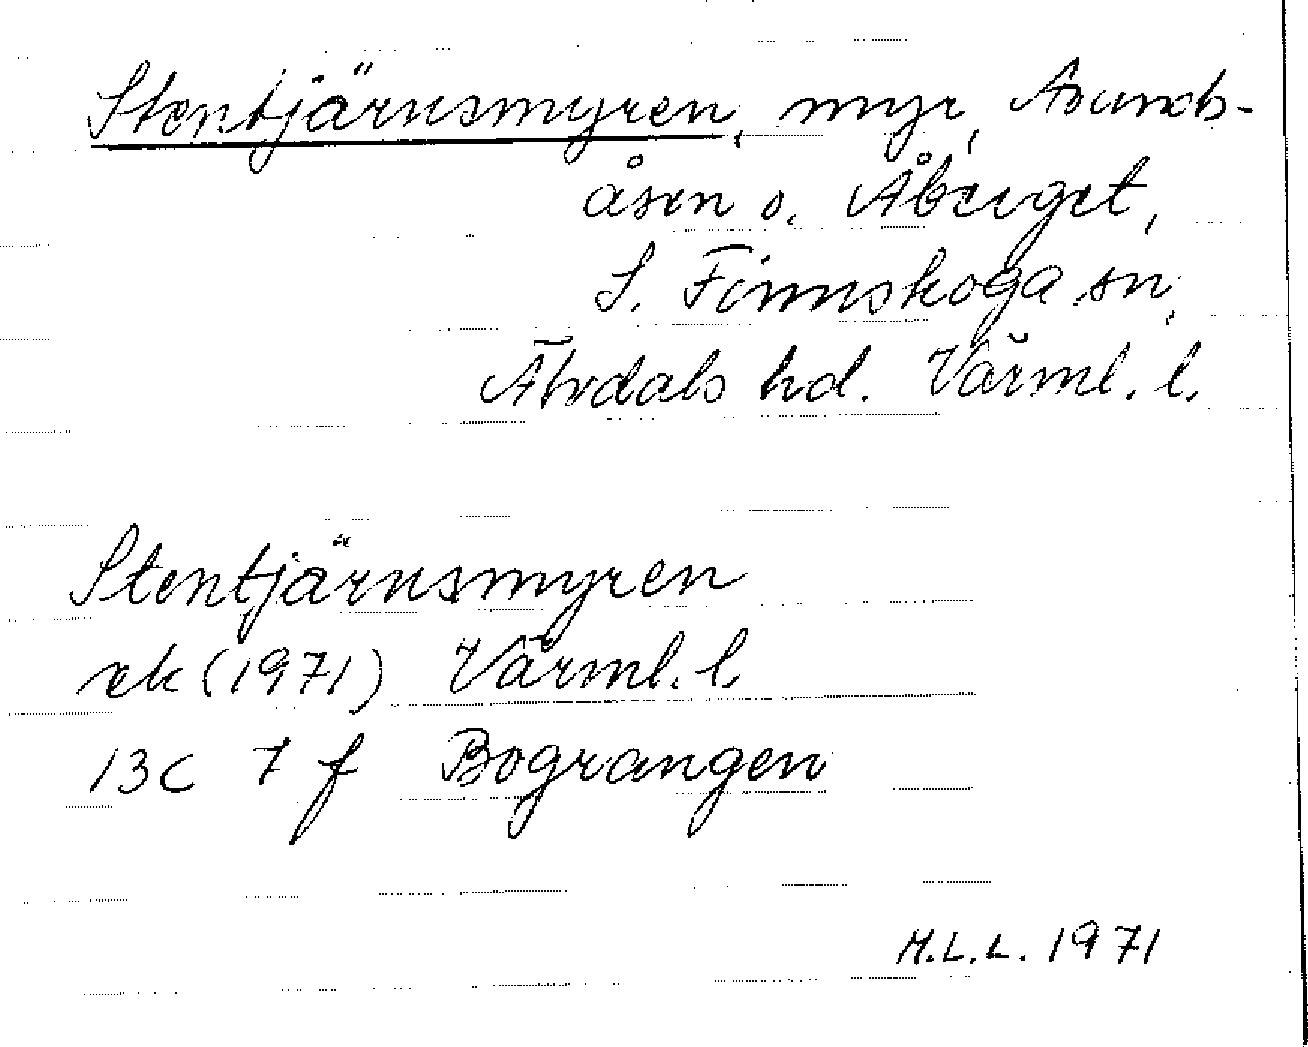 Stentjärnsmyren, myr, Asunds-
åsen o. Åberget,
S. Finnskoga sn,
Älvdals hd. Värml. l.
Stentjärnsmyren
ek (1971) Värml. l.
13C 7 f Bograngen
M.L.L. 1971